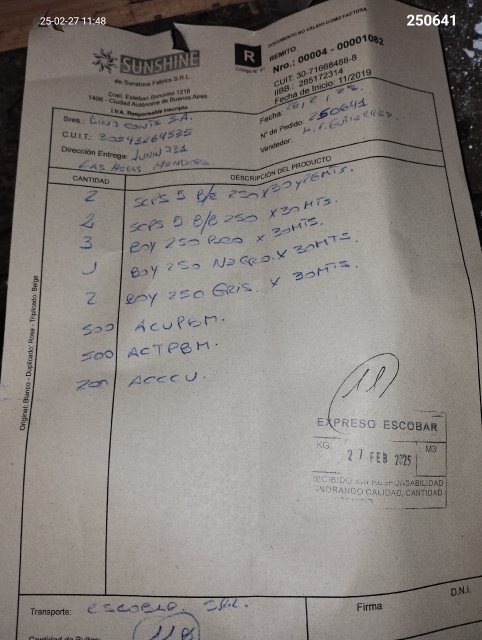 25-02-27 11:48
250641
DOCUMENTO NO VALIDO COMO FACTURA
SUNSHINE
de Sunshine Fabrics S.R.L.
Cnel. Esteban Bonorino 1218
1406 - Ciudad Autónoma de Buenos Aires
I.V.A. Responsable Inscripto
R
Código N° 91
REMITO
Nro.: 00004 - 00001082
CUIT: 30-71668488-8
IIBB.: 285172314
Fecha de Inicio: 11/2019
Fecha: 26/2/25
N° de Pedido: 250641
Vendedor: H. F. GUTIERREZ
Sres.: DINO CONTE SA.
C.U.I.T.:
Dirección Entrega: JUNIN 731
LAS HERAS MENDOZA.
CANTIDAD DESCRIPCIÓN DEL PRODUCTO
2 SCPS 5 B/E 250 x 30
2 SCPS 5 B/B 250 x 30 MTS.
3 BOY 250 BCO x 30 MTS.
1 BOY 250 NEGRO. x 30 MTS.
2 BOY 250 GRIS. x 30 MTS.
500 ACUPBM.
500 ACTPBM.
200 ACCCU.
Original: Blanco - Duplicado: Rosa - Triplicado: Beige
EXPRESO ESCOBAR
KG. M3
27 FEB 2025
RECIBIDO SIN RESPONSABILIDAD
IGNORANDO CALIDAD, CANTIDAD
Transporte: ESCOBAR SRL.
Firma
D.N.I.
Cantidad de Bultos: